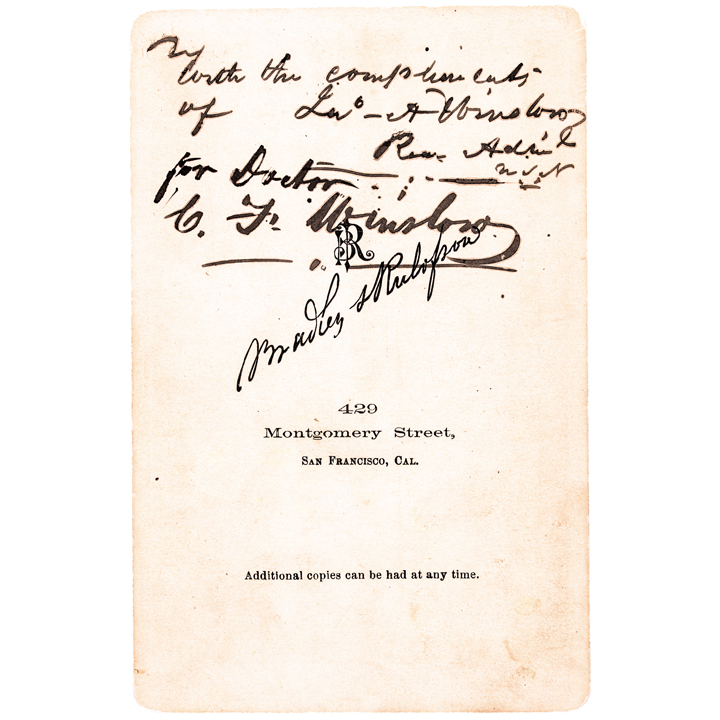 With the compliments
of Jno - A Winslow
Rear Adml
U.S.N
for Doctor
C. F. Winslow
BR
Bradley & Rulofson
429
Montgomery Street,
San Francisco, Cal.
Additional copies can be had at any time.